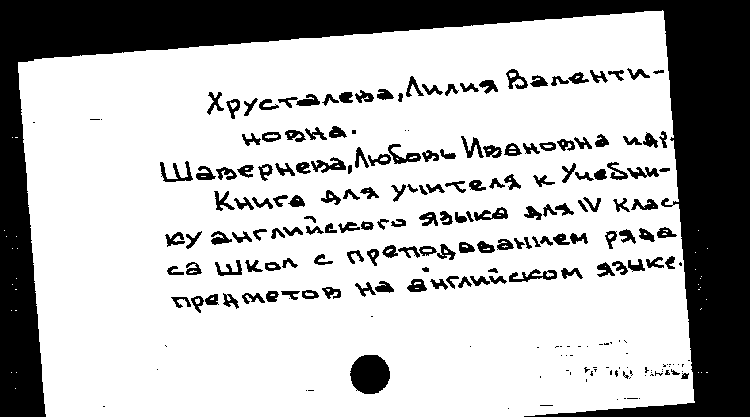 Хрусталева, Лилия Валенти-
новна.
Шавернева, Любовь Ивановна и др.
Книга для учителя к Учебни-
ку английского языка для IV клас-
са школ с преподаванием ряда
предметов на английском языке.